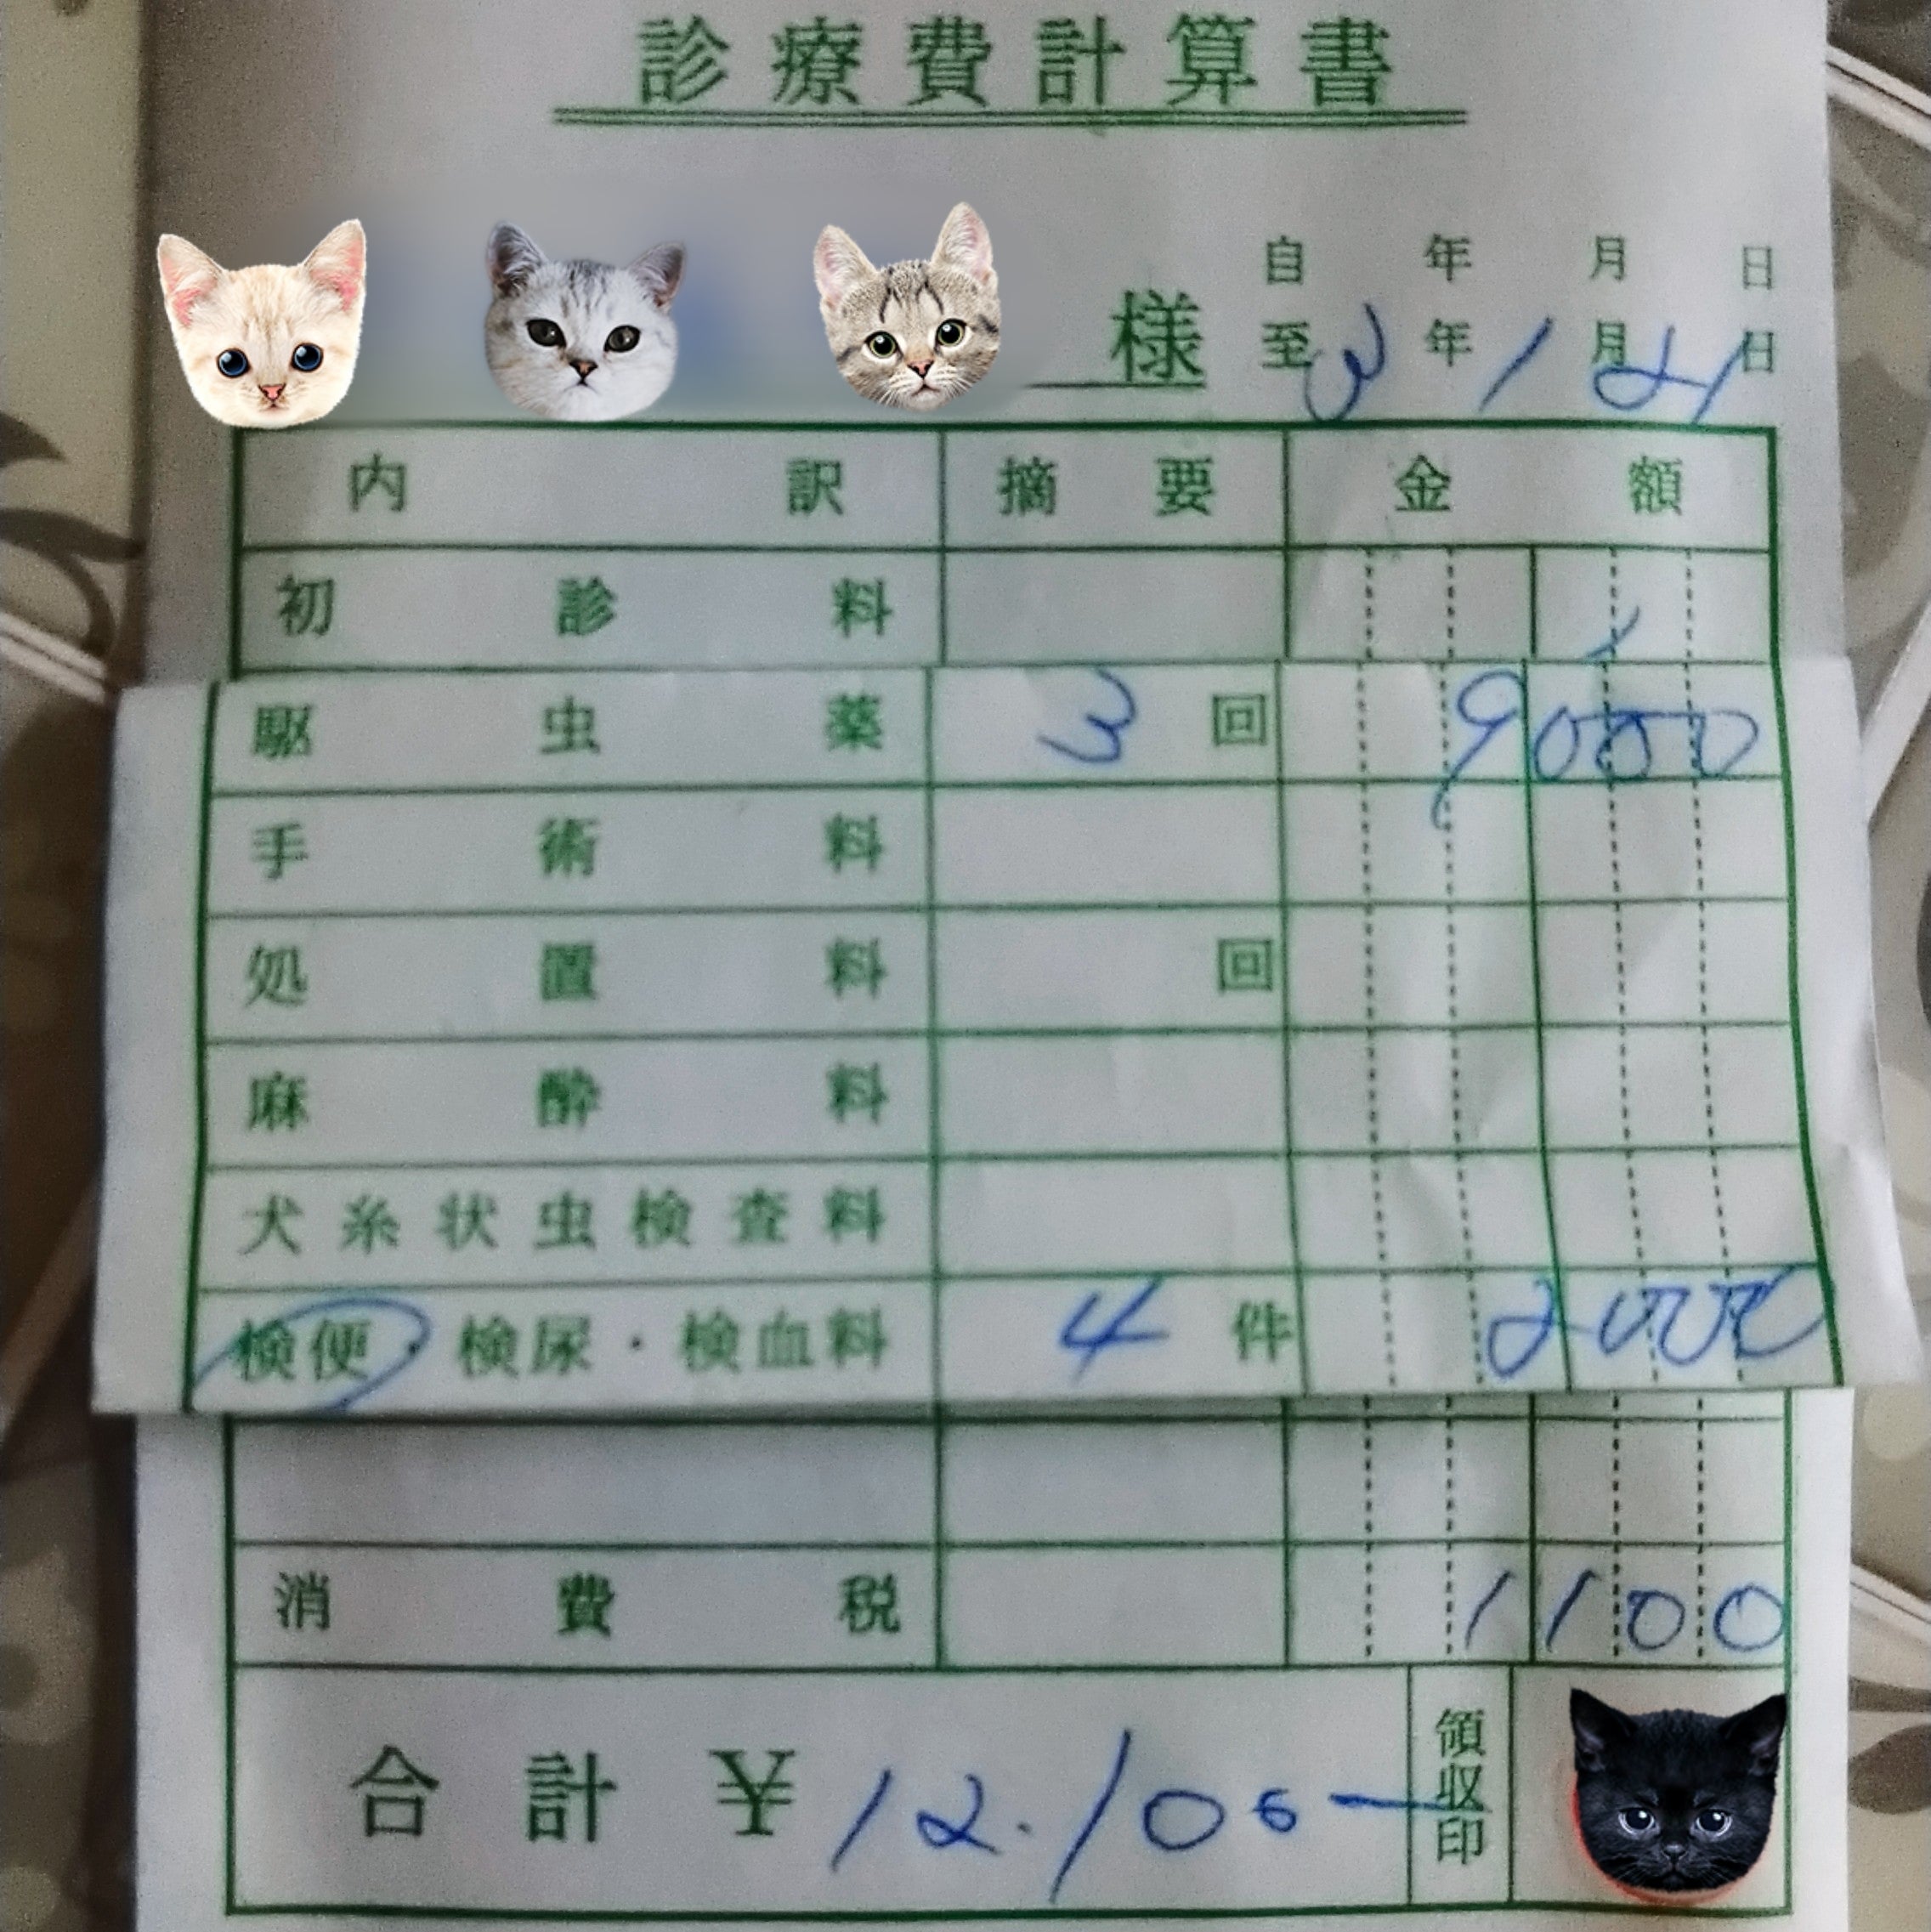 診療費計算書
自 年 月 日
様 至 3 年 1 月 21 日
内訳 摘要 金額
初診料
駆虫薬 3 回 9000
手術料
処置料 回
麻酔料
犬糸状虫検査料
検便・検尿・検血料 4 件 2000
消費税 1100
合計 ¥12.100ー 領収印